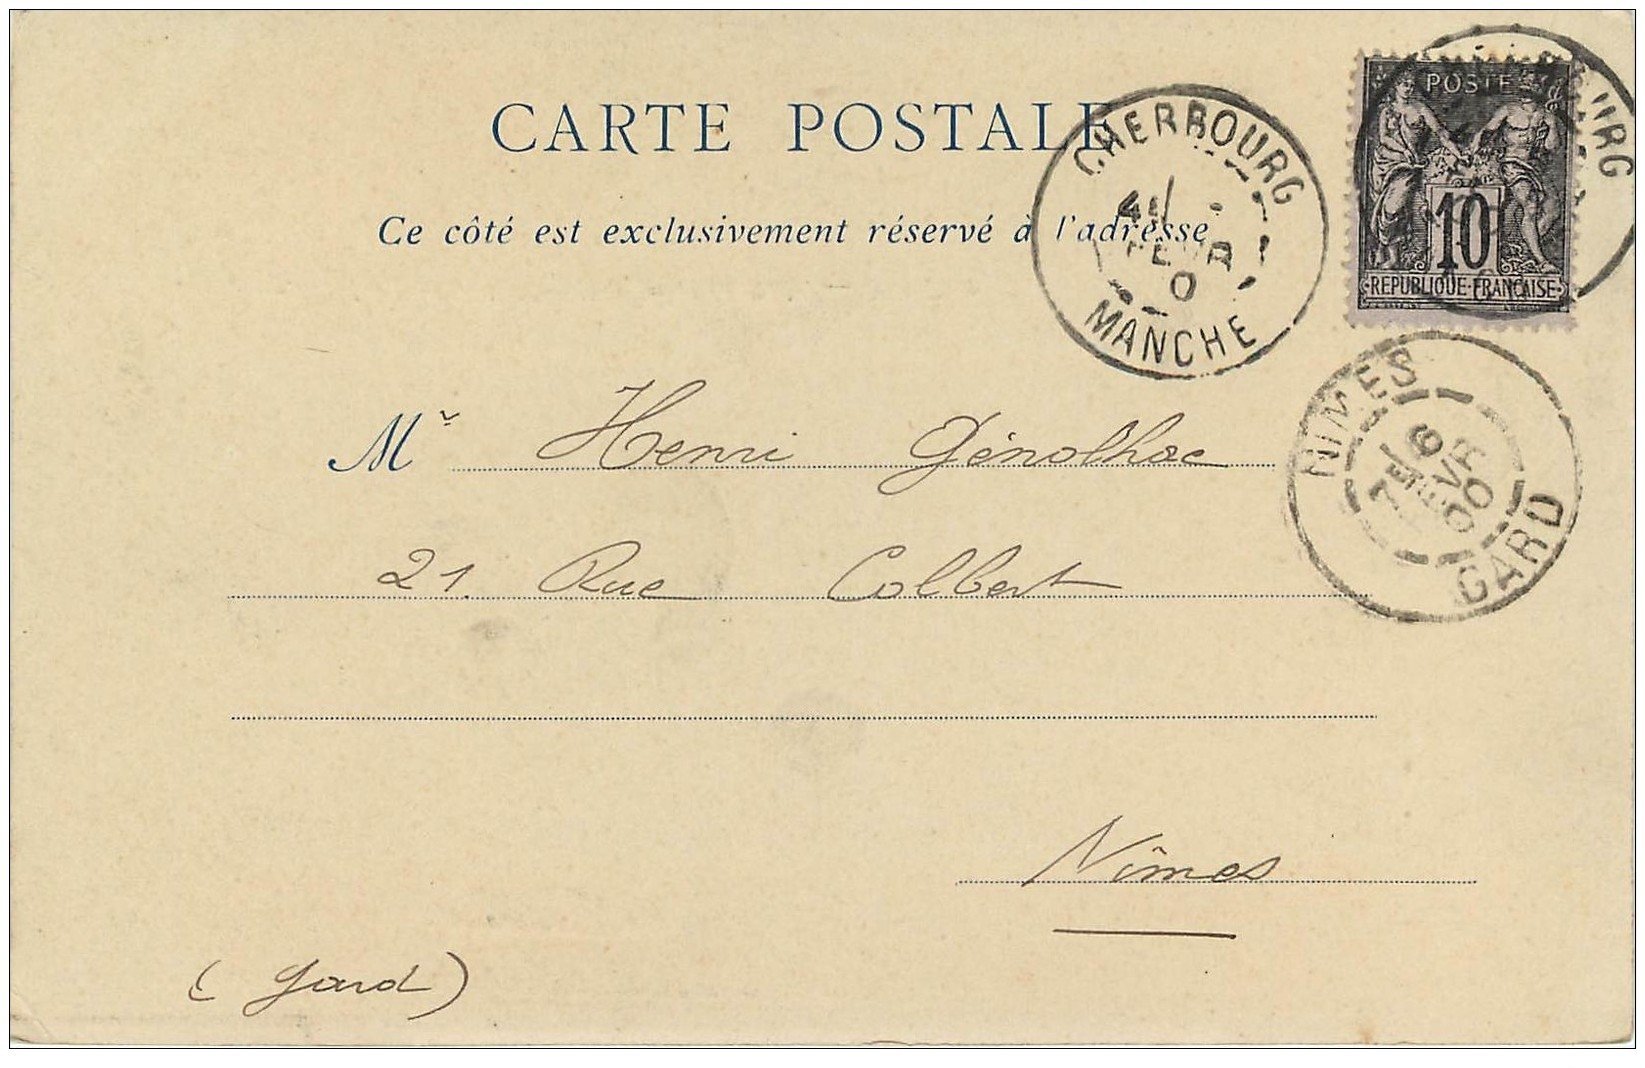 CARTE POSTALE
Ce côté est exclusivement réservé à l'adresse
CHERBOURG
FEVR
0
MANCHE
POSTE
10
REPUBLIQUE FRANCAISE
NIMES
7E 6
FEVR
00
GARD
Mr Henri Génolhac
21. Rue Colbert
Nîmes
(Gard)